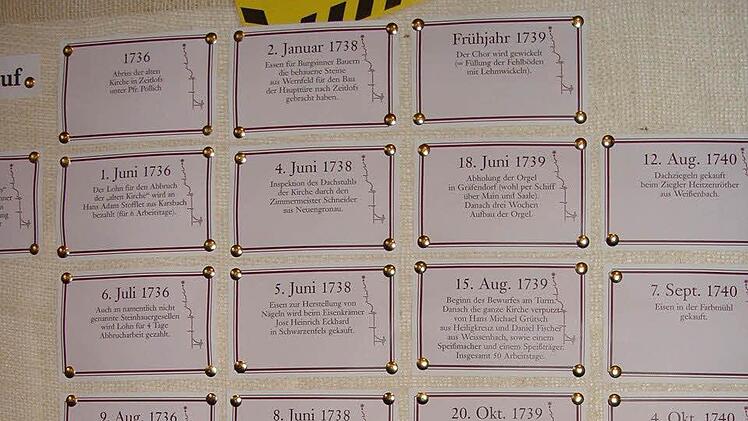 uf
1736
Abriss der alten
Kirche in Zeitlofs
unter Pfr. Pollich
2. Januar 1738
Essen für Burgsinner Bauern
die behauene Steine
aus Wernfeld für den Bau
der Haupttüre nach Zeitlofs
gebracht haben.
Frühjahr 1739
Der Chor wird gewickelt
(= Füllung der Fehlböden
mit Lehmwickeln).
1. Juni 1736
Der Lohn für den Abbruch
der „alten Kirche" wird an
Hans Adam Stofflet aus Karsbach
bezahlt (für 6 Arbeitstage).
4. Juni 1738
Inspektion des Dachstuhls
der Kirche durch den
Zimmermeister Schneider
aus Neuengronau.
18. Juni 1739
Abholung der Orgel
in Gräfendorf (wohl per Schiff
über Main und Saale).
Danach drei Wochen
Aufbau der Orgel.
12. Aug. 1740
Dachziegeln gekauft
beim Ziegler Heitzenröther
aus Weißenbach.
6. Juli 1736
Auch an namentlich nicht
genannte Steinhauergesellen
wird Lohn für 4 Tage
Abbrucharbeit gezahlt.
5. Juni 1738
Eisen zur Herstellung von
Nägeln wird beim Eisenkrämer
Jost Heinrich Eckhard
in Schwarzenfels gekauft.
15. Aug. 1739
Beginn des Bewurfes am Turm.
Danach die ganze Kirche verputzt
von Hans Michael Grütsch
aus Heiligkreuz und Daniel Fischer
aus Weissenbach, sowie einem
Speißmacher und einem Speißträger.
Insgesamt 50 Arbeitstage.
7. Sept. 1740
Eisen in der Farbmühl
gekauft.
9. Aug. 1736
8. Juni 1738
20. Okt. 1739
4. Okt. 1740